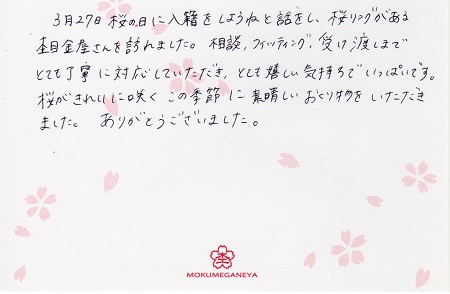 3月27日桜の日に入籍をしようねと話をし、桜リングがある
杢目金屋さんを訪れました。相談、フィッティング、受け渡しまで
とても丁寧に対応していただき、とても嬉しい気持ちでいっぱいです。
桜がきれいに咲くこの季節に素晴しいおくり物をいただき
ました。ありがとうございました。
杢
MOKUMEGANEYA